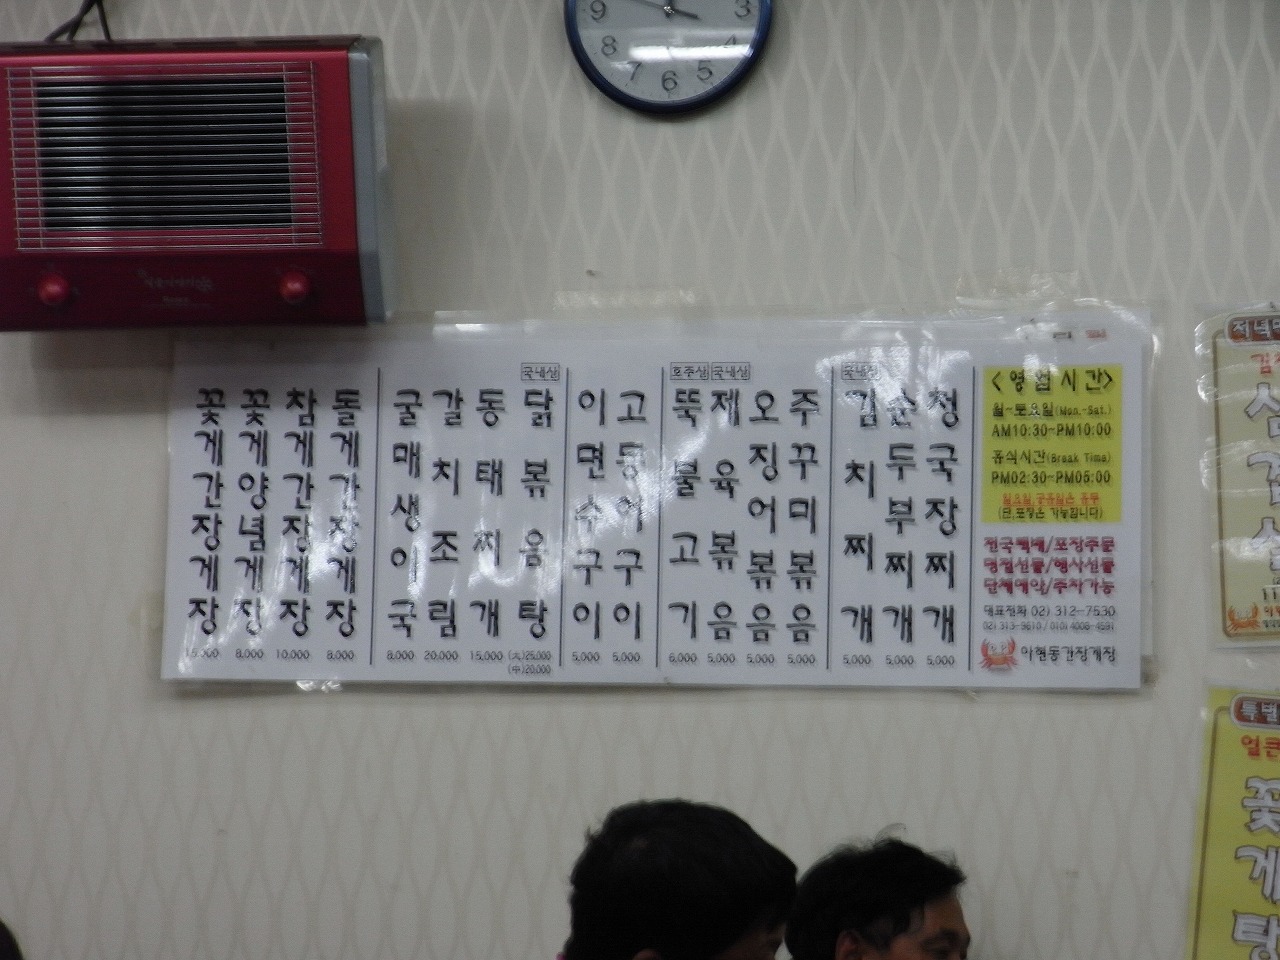 9
3
8
4
7
6
5
꽃게간장게장 15,000
꽃게양념게장 8,000
참게간장게장 10,000
돌게간장게장 8,000
굴매생이국 8,000
갈치조림 20,000
동태찌개 15,000
국내산
닭볶음탕 (大)25,000
(中)20,000
이면수구이 5,000
고등어구이 5,000
호주산
뚝불고기 6,000
국내산
제육볶음 5,000
오징어볶음 5,000
주꾸미볶음 5,000
국내산
김치찌개 5,000
순두부찌개 5,000
청국장찌개 5,000
<영업시간>
월~토요일(Mon.-Sat.)
AM10:30~PM10:00
휴식시간(Break Time)
PM02:30~PM05:00
일요일, 공휴일은 휴무
(단,포장은 가능합니다)
전국택배/포장주문
명절선물/행사선물
단체예약/주차가능
대표전화 02) 312-7530
02) 313-9610 / 010) 4008-4591
아현동간장게장
저녁
특별
얼큰
꽃게탕